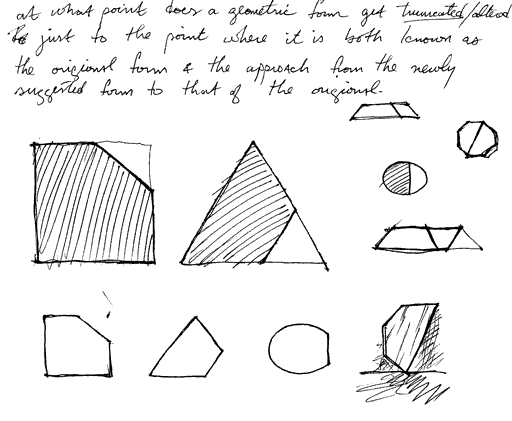 at what point does a geometric form get truncated/altered
to just to the point where it is both known as
the origional form & the approach from the newly
suggested form to that of the origional.